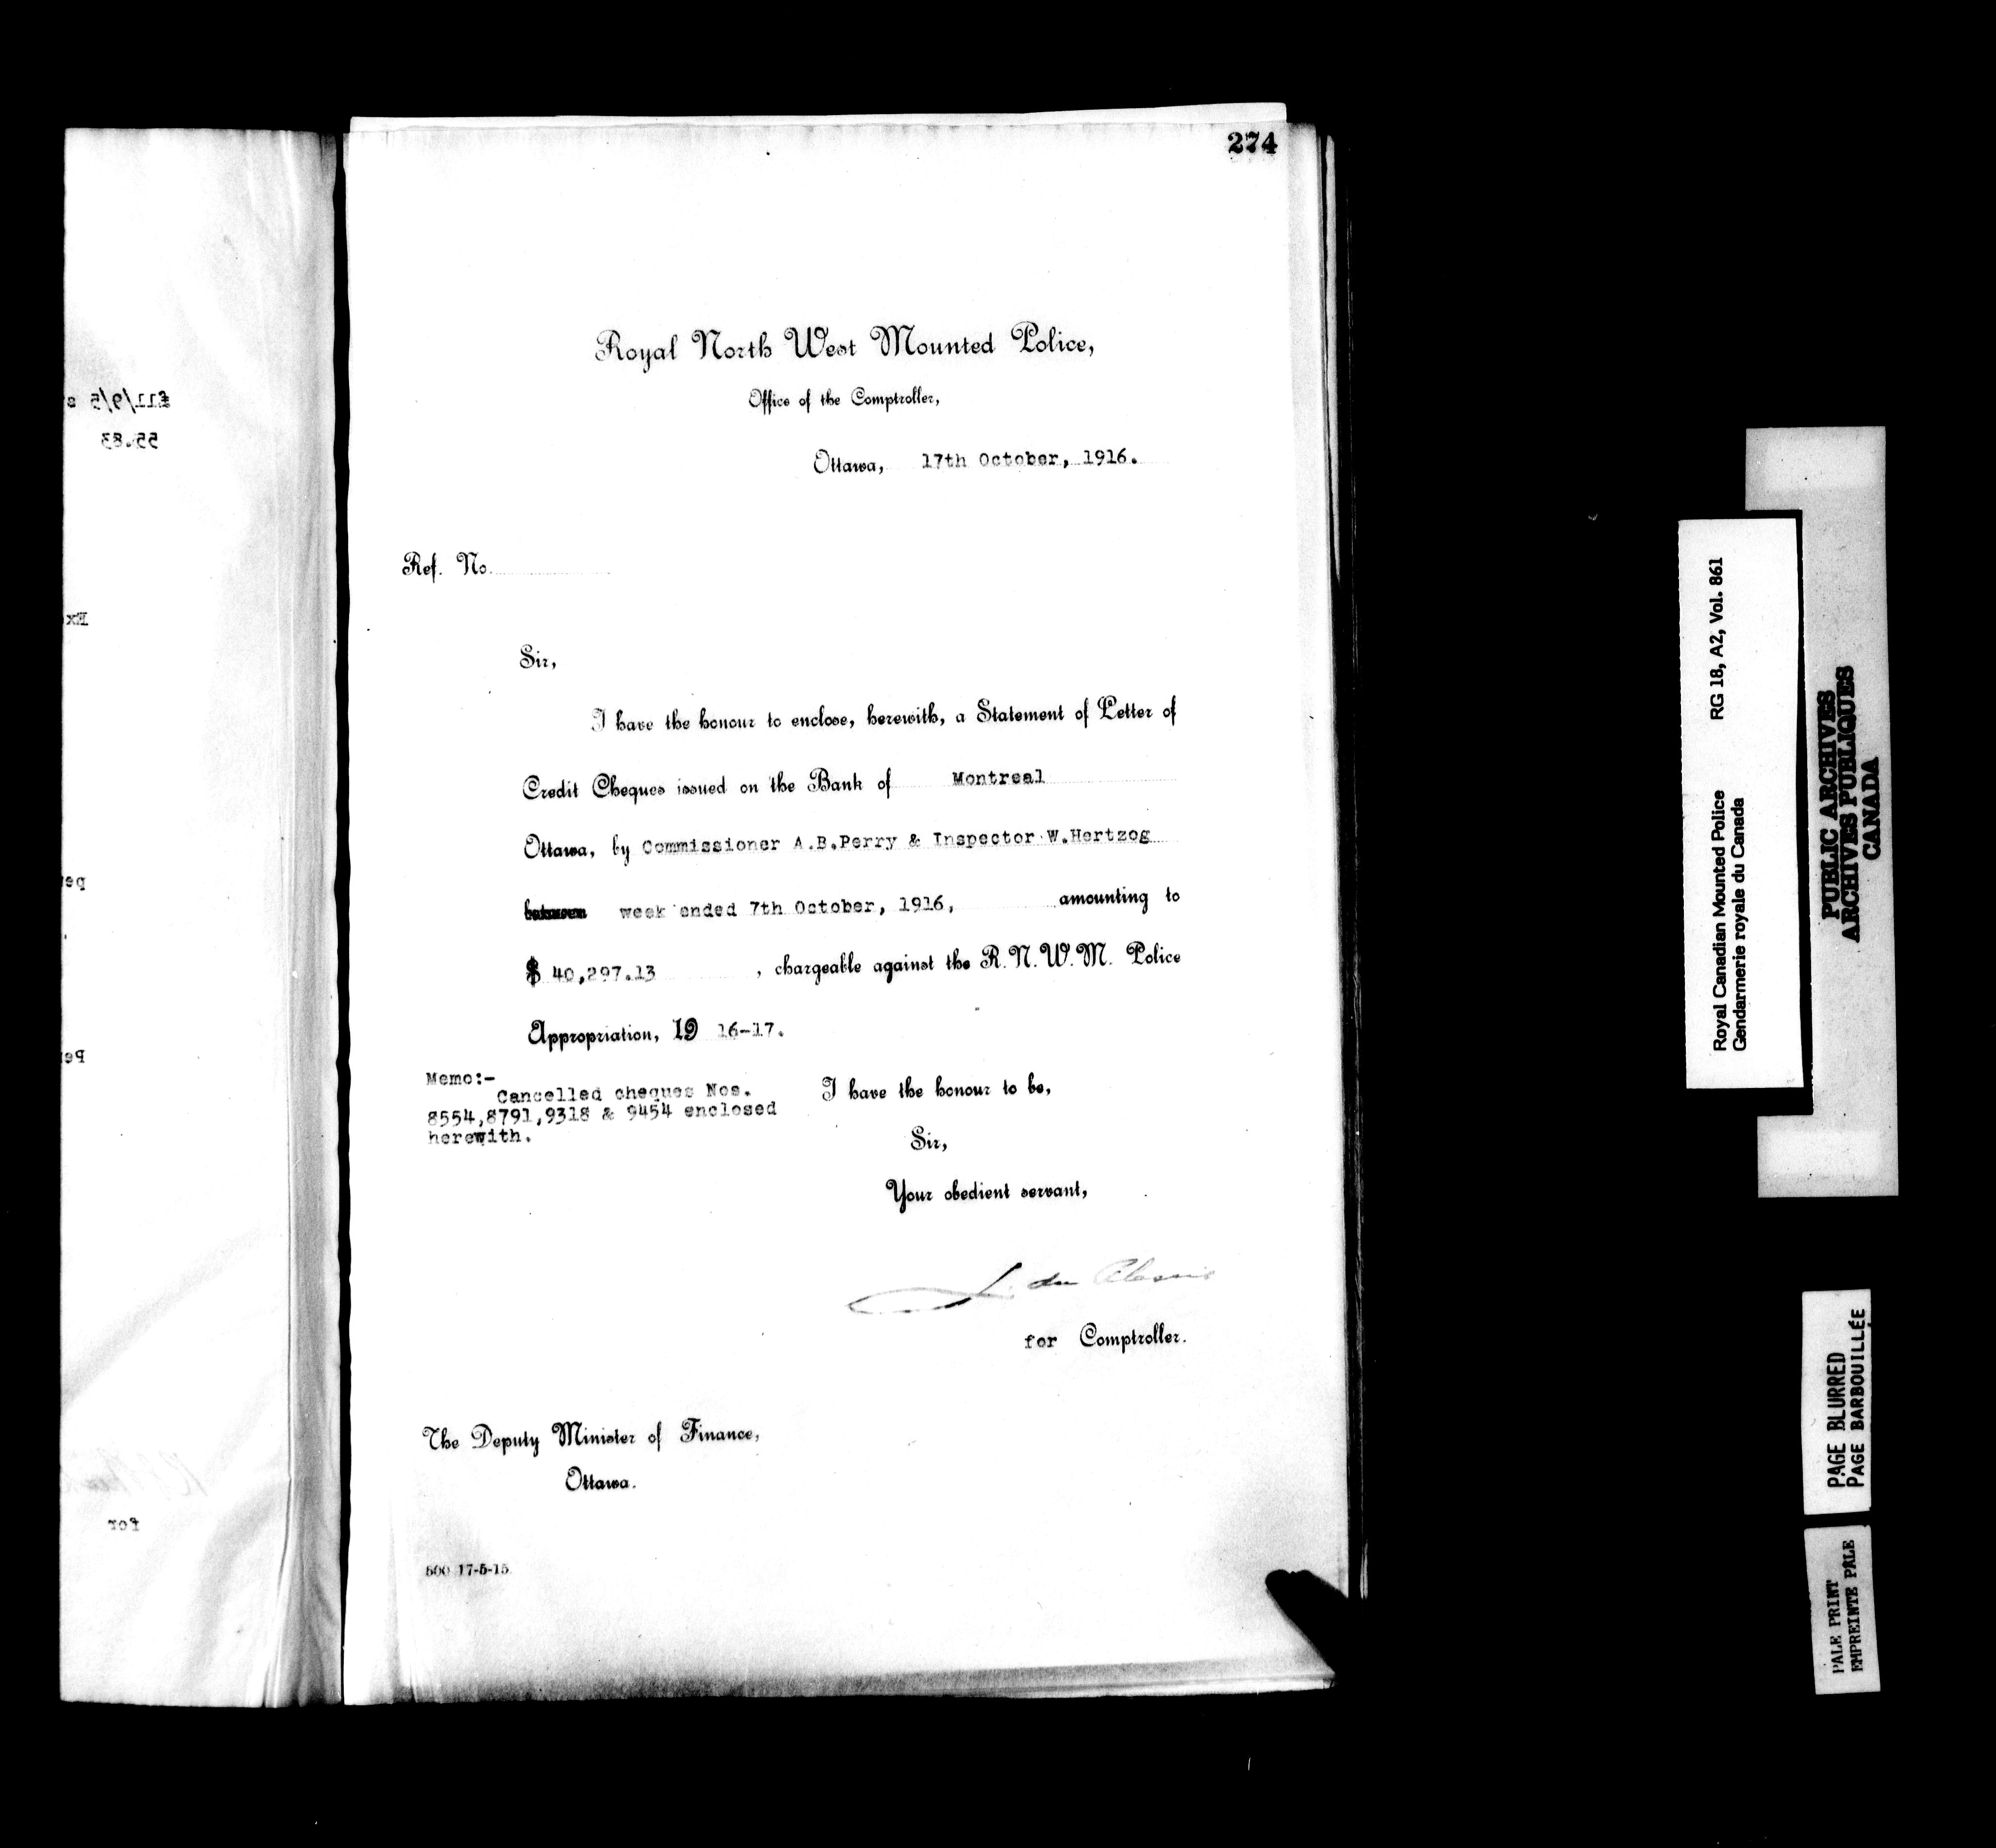 274
Royal North West Mounted Police,
Office of the Comptroller,
Ottawa, 17th October, 1916.
Ref. No.
Sir,
I have the honour to enclose, herewith, a Statement of Letter of
Credit Cheques issued on the Bank of Montreal
Ottawa, by Commissioner A.B.Perry & Inspector W.Hertzog
between week ended 7th October, 1916, amounting to
$ 40,297.13 , chargeable against the R. N. W. M. Police
Appropriation, 19 16-17.
Memo:-
Cancelled cheques Nos.
8554,8791,9318 & 9454 enclosed
herewith.
I have the honour to be,
Sir,
Your obedient servant,
L. du Plessis
for Comptroller.
The Deputy Minister of Finance,
Ottawa.
500 17-5-15
£11/9/5 s
55.83
Ex
per
Per
for
Royal Canadian Mounted Police RG 18, A2, Vol. 861
Gendarmerie royale du Canada
PUBLIC ARCHIVES
ARCHIVES PUBLIQUES
CANADA
PAGE BLURRED
PAGE BARBOUILLÉE
PALE PRINT
EMPREINTE PÂLE